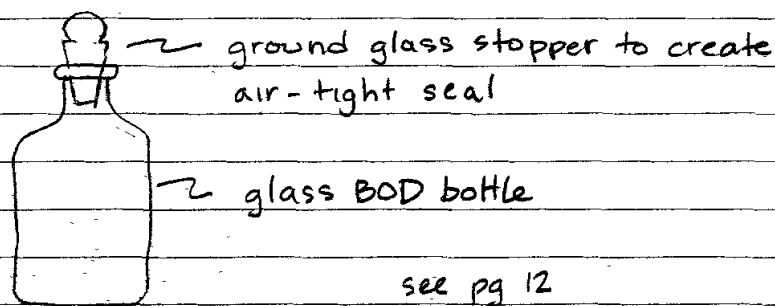 ground glass stopper to create
air-tight seal
glass BOD bottle
see pg 12